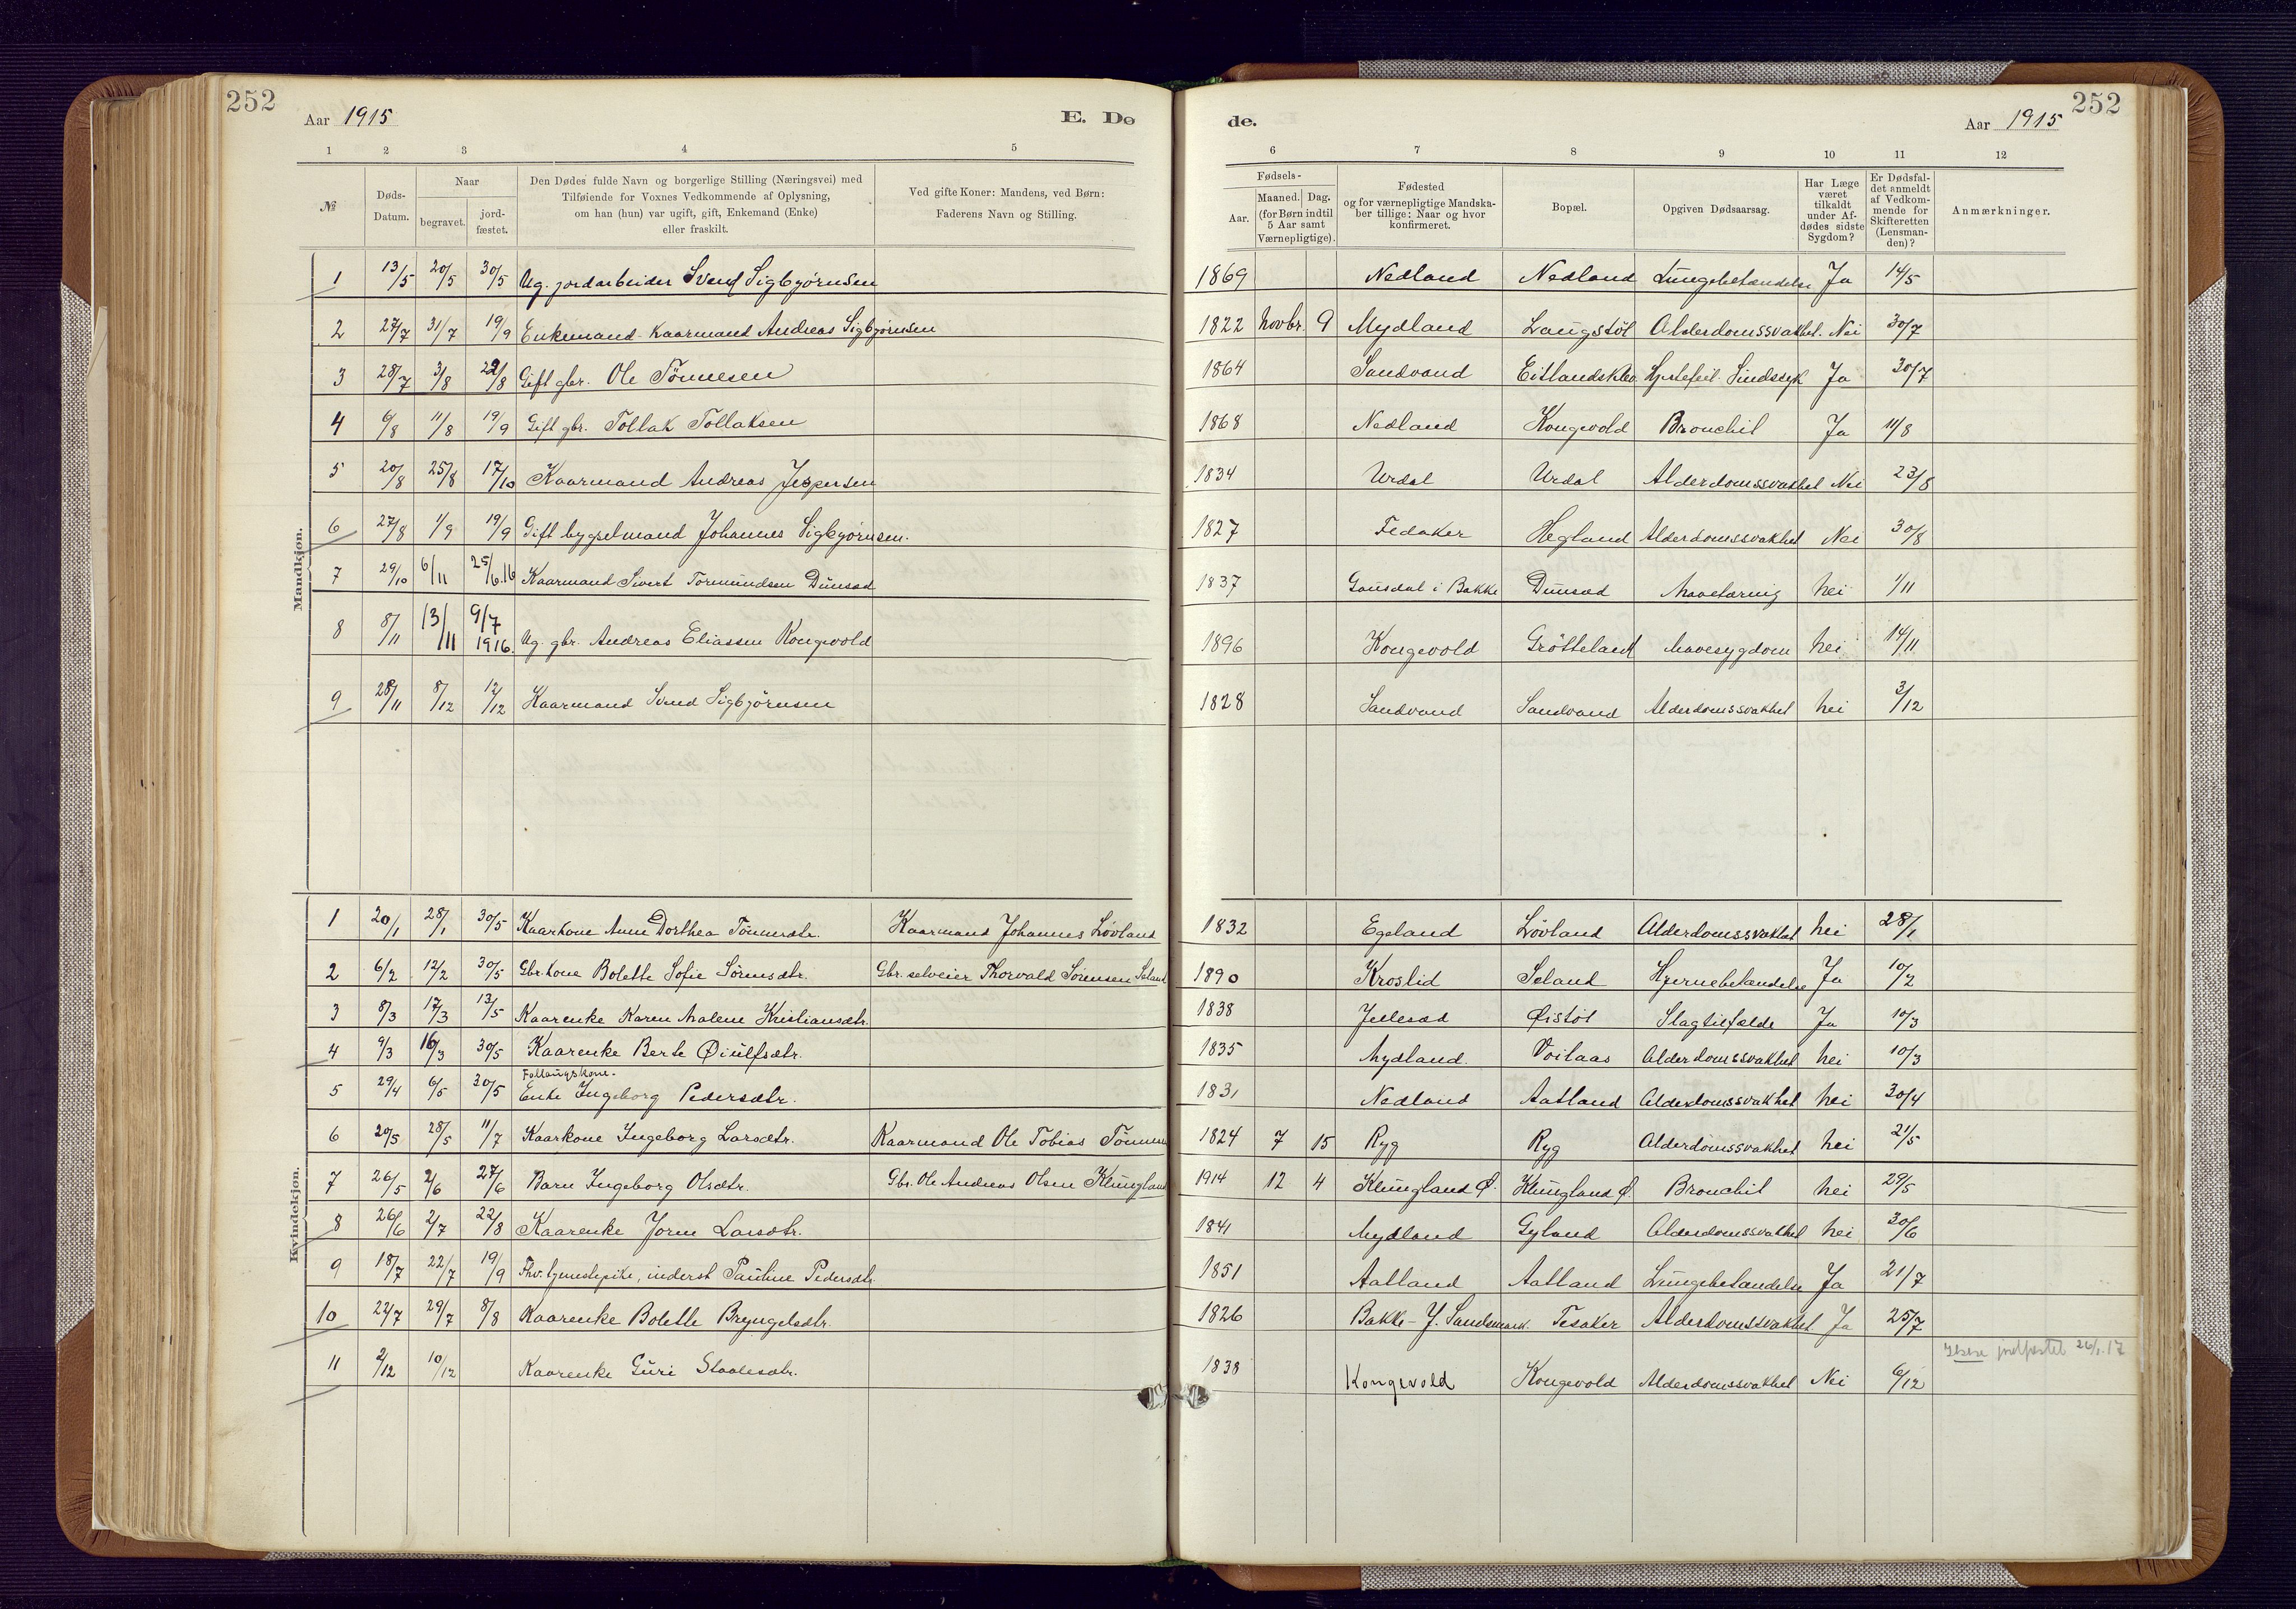 252
Aar 1915
E. Dø
de.
Aar 1915
252
1 2 3 4 5 6 7 8 9 10 11 12
№
Døds-
Datum.
Naar
begravet.
jord-
fæstet.
Den Dødes fulde Navn og borgerlige Stilling (Næringsvei) med
Tilføiende for Voxnes Vedkommende af Oplysning,
om han (hun) var ugift, gift, Enkemand (Enke)
eller fraskilt.
Ved gifte Koner: Mandens, ved Børn:
Faderens Navn og Stilling.
Fødsels-
Aar.
Maaned.
Dag.
(for Børn indtil
5 Aar samt
Værnepligtige).
Fødested
og for værnepligtige Mandska-
ber tillige: Naar og hvor
konfirmeret.
Bopæl.
Opgiven Dødsaarsag.
Har Læge
været
tilkaldt
under Af-
dødes sidste
Sygdom?
Er Dødsfal-
det anmeldt
af Vedkom-
mende for
Skifteretten
(Lensman-
den)?
Anmærkninger.
Mandkjøn.
1 13/5 20/5 30/5 Ug. jordarbeider Svend Sigbjørnsen 1869 Nedland Nedland Lungebetændelse Ja 14/5
2 27/7 31/7 19/9 Enkemand Kaarmand Andreas Sigbjørnsen 1822 Novbr. 9 Mydland Langstöl Alderdomssvakhet. Nei 30/7
3 28/7 3/8 22/8 Gift gbr. Ole Tönnesen 1864 Sandvand Eitlandsklev Hjertefeil. Sindssyk Ja 30/7
4 6/8 11/8 19/9 Gift gbr. Tollak Tollaksen 1868 Nedland Kongevold Bronchit Ja 11/8
5 20/8 25/8 17/10 Kaarmand Andreas Jespersen 1834 Urdal Urdal Alderdomssvakhet Nei 23/8
6 27/8 1/9 19/9 Gift bygselmand Johannes Sigbjørnsen. 1827 Fedaker Hegland Alderdomssvakhet Nei 30/8
7 29/10 6/11 25/6.16 Kaarmand Sivert Tormundsen Dunsæd 1837 Gausdal i Bakke Dunsæd Mavetæring Nei 1/11
8 8/11 13/11 9/7 1916. Ug. gbr. Andreas Eliassen Kongevold 1896 Kongevold Grötteland Mavesygdom Nei 14/11
9 28/11 8/12 12/12 Kaarmand Svend Sigbjörnsen 1828 Sandvand Sandvand Alderdomssvakhet Nei 3/12
Kvindekjøn.
1 20/1 28/1 30/5 Kaarkone Anne Dorthea Tönnesdtr. Kaarmand Johannes Lövland 1832 Egeland Lövland Alderdomssvakhet Nei 28/1
2 6/2 12/2 30/5 Gbr. kone Bolette Sofie Sörensdtr. Gbr. selveier Thorvald Sörensen Seland 1890 Kroslid Seland Hjernebetændelse Ja 10/2
3 8/3 17/3 13/5 Kaarenke Karen Malene Kristiansdtr. 1838 Jellesæd Øistöl Slagtilfælde Ja 10/3
4 9/3 16/3 30/5 Kaarenke Berte Øiulfsdtr. 1835 Mydland. Voilaas Alderdomssvakhet Nei 10/3
5 29/4 6/5 30/5 Fattigskone. Enke Ingeborg Pedersdtr. 1831 Nedland Aatland Alderdomssvakhet Nei 30/4
6 20/5 28/5 11/7 Kaarkone Ingeborg Larsdtr. Kaarmand Ole Tobias Tönnesen 1824 7 15 Ryg Ryg Alderdomssvakhet Nei 21/5
7 26/5 2/6 27/6 Barn Ingeborg Olsdtr. Gbr. Ole Andreas Olsen Klungland 1914 12 4 Klungland Ø. Klungland Ø. Bronchit Nei 29/5
8 26/6 2/7 22/8 Kaarenke Joren Larsdtr. 1841 Mydland Gyland Alderdomssvakhet Nei 30/6
9 18/7 22/7 19/9 Fhv. tjenestepike, inderst Pauline Pedersdtr. 1851 Aatland Aatland Lungebetændelse Ja 21/7
10 22/7 29/7 8/8 Kaarenke Bolette Bryngelsdtr. 1826 Bakke - Y. Sandsmark. Tesaker Alderdomssvakhet Ja 25/7
11 2/12 10/12 Kaarenke Guri Staalesdtr. 1838 Kongevold Kongevold Alderdomssvakhet Nei 6/12 jordfæstet 26/1.17